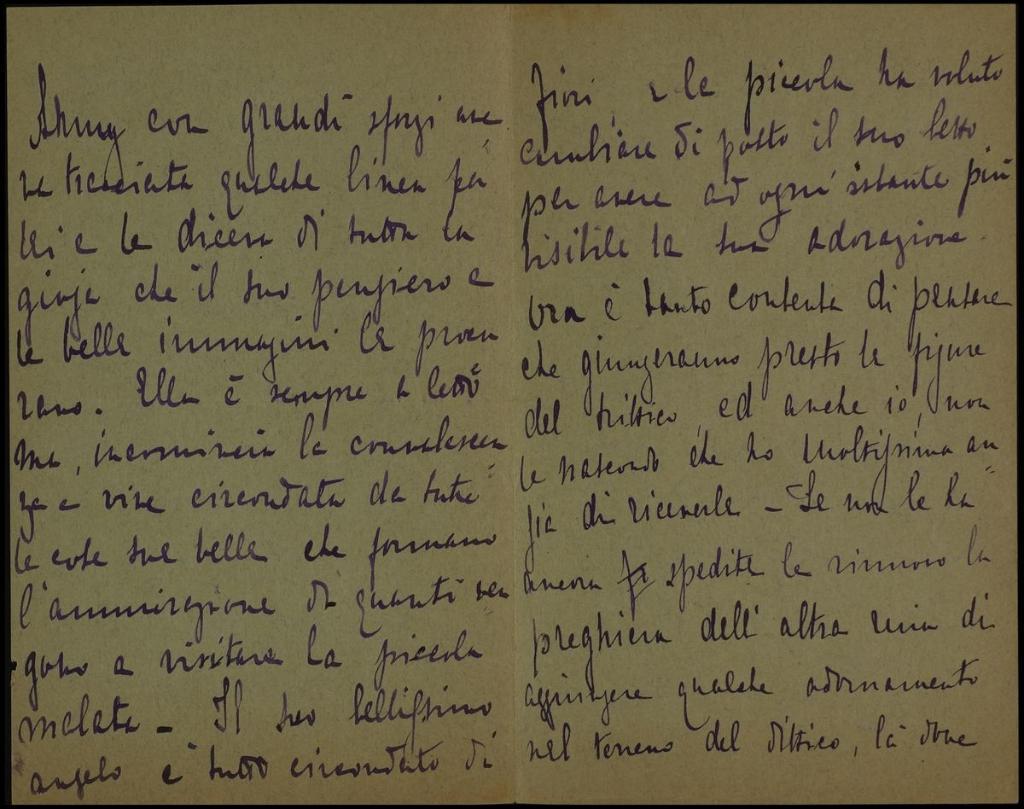 con grandi sforzi ave
va tracciata qualche linea per
lei e le diceva di tutta la
gioja che il suo pensiero e
le belle immagini le procu
rano. Ella è sempre a letto
ma, incomincia la convalescen
za e vive circondata da tutte
le cose sue belle che formano
l'ammirazione di quanti ven
gono a visitare la piccola
malata – Il suo bellissimo
angelo è tutto circondato di
fiori e la piccola ha voluto
cambiare di posto il suo letto
per avere ad ogni istante più
visibile la sua adorazione.
Ora è tanto contenta di pensare
che giungeranno presto le figure
del trittico, ed anche io, non
le nascondo che ho moltissima an
sia di riceverle – Se non le ha
ancora spedite le rinnovo la
preghiera dell'altra mia di
aggiungere qualche adornamento
nel terreno del dittico, là dove